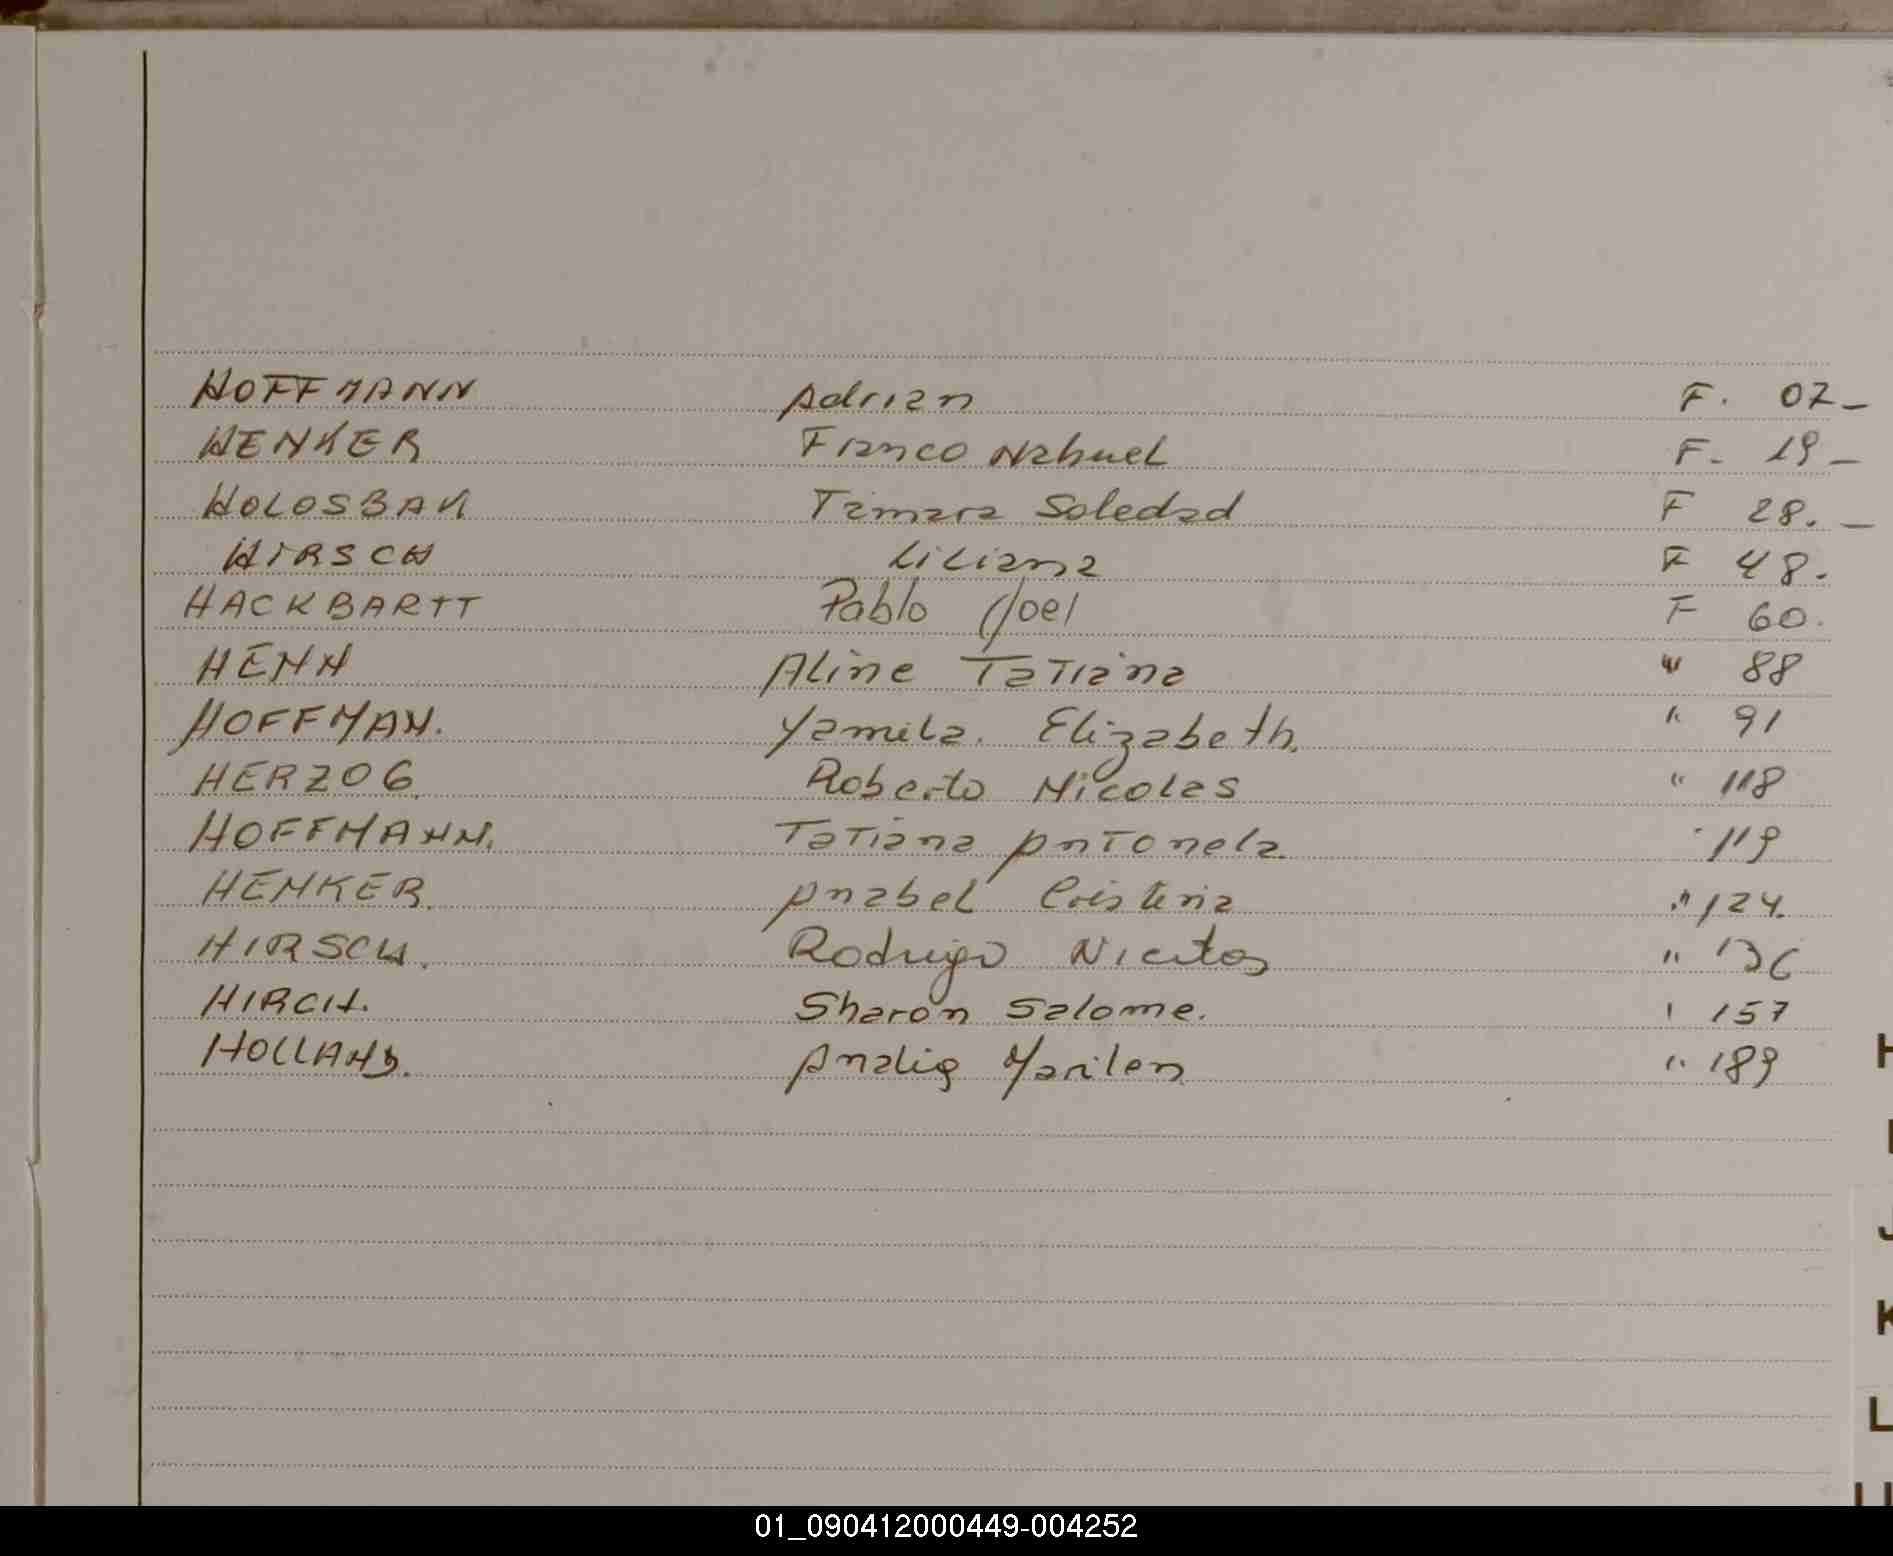 HOFFMANN Adrian F. 07_
HENKER Franco Nahuel F. 19_
HOLOSBAK Tamara Soledad F 28._
HIRSCH Liliana F 48.
HACKBARTT Pablo Joel F 60.
HENN Aline Tatiana " 88
HOFFMAN. Yamila. Elizabeth. " 91
HERZOG. Roberto Nicolas " 118
HOFFMANN. Tatiana Antonela. " 119
HENKER. Anabel Cristina " 124.
HIRSCH. Rodrigo " 136
HIRCH. Sharon Salome. " 157
HOLLAND. Analia Marilen " 189
H
J
K
L
01_090412000449-004252